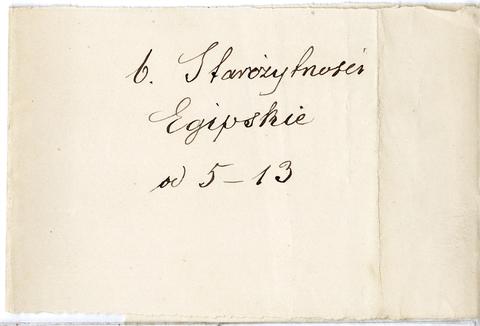 6. Starożytności
Egipskie
od 5-13